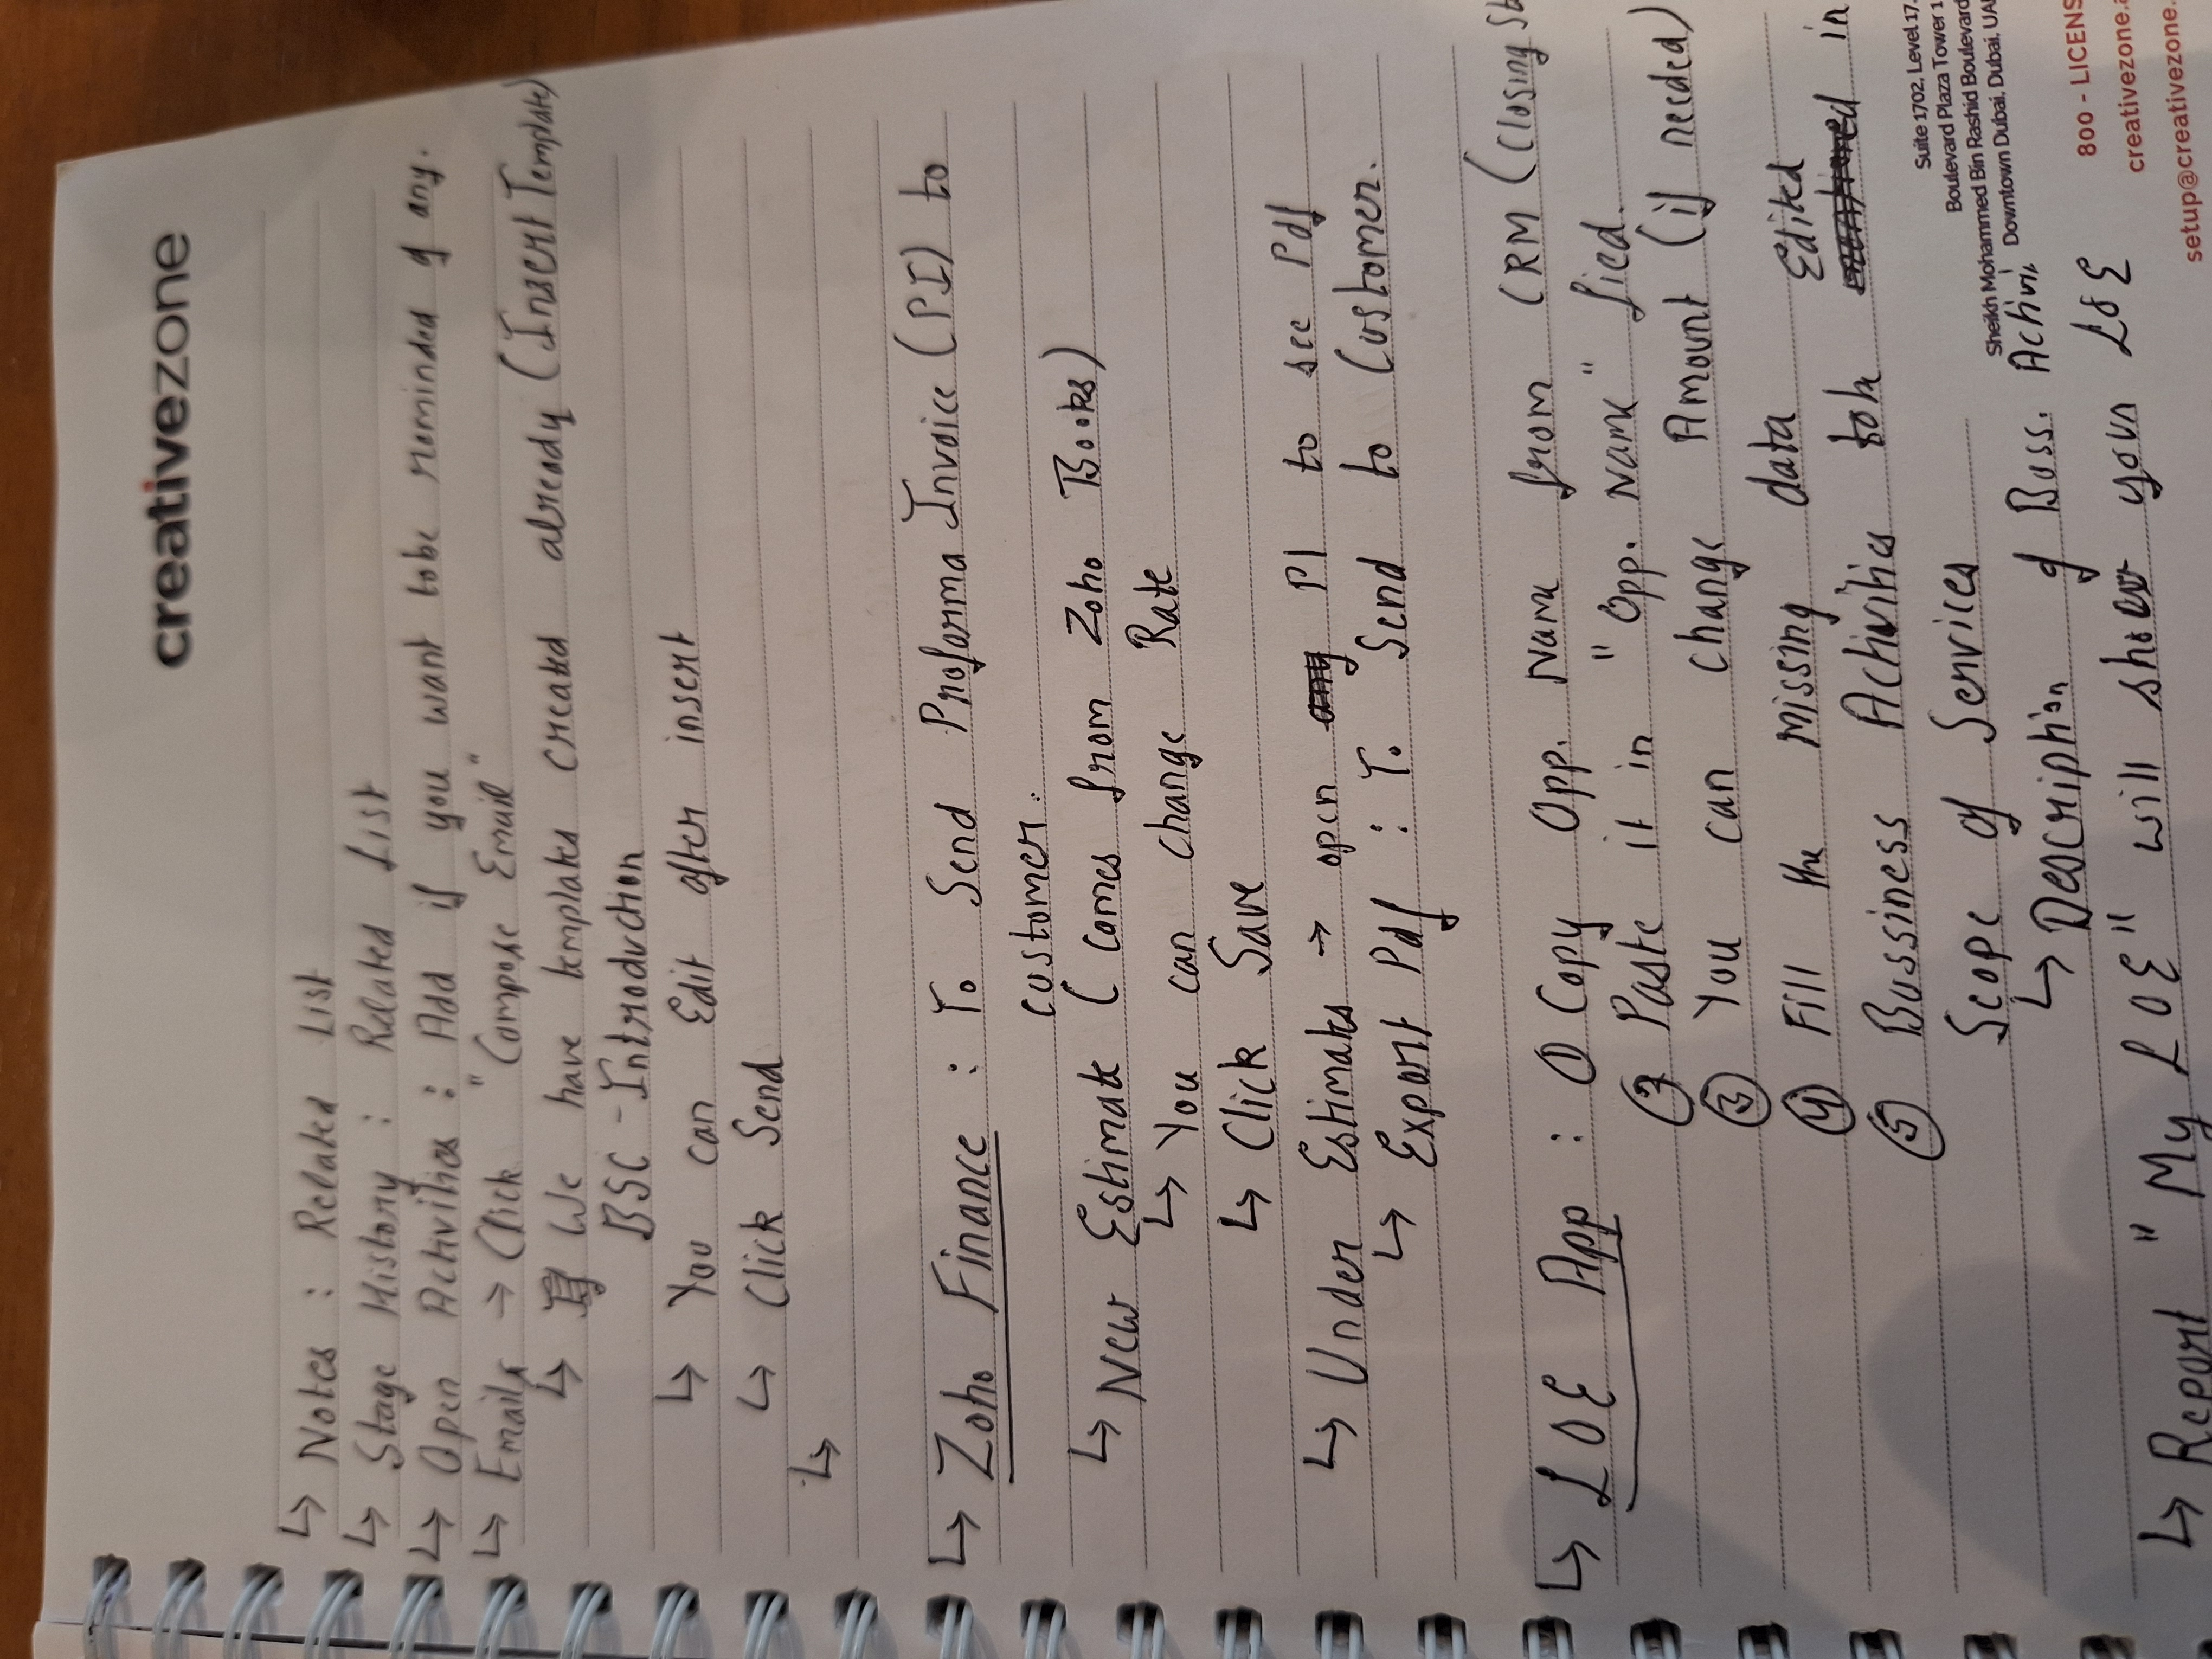 creativezone
↳ Notes : Related List
↳ Stage History : Related List
↳ Open Activities : Add if you want tobe reminded of any.
↳ Emails → Click "Compose Email"
↳ We have templates created already (Insert Template)
BSC - Introduction
↳ You can Edit after insert
↳ Click Send
↳
↳ Zoho Finance : To Send Proforma Invoice (PI) to
customer.
↳ New Estimate (comes from Zoho Books)
↳ You can change Rate
↳ Click Save
↳ Under Estimates → open any PI to see Pdf
↳ Export Pdf : To Send to Customer.
↳ LOE App : ① Copy Opp. Name from CRM (Closing St
② Paste it in "Opp. Name" fied.
③ You can change Amount (if needed)
④ Fill the missing data
Edited
⑤ Bussiness Activities tobe mentioned in
Scope of Services
↳ Description of Buss. Activi
↳ Report "My LOE" will show your LOE
Suite 1702, Level 17,
Boulevard Plaza Tower 1
Sheikh Mohammed Bin Rashid Boulevard
Downtown Dubai, Dubai, UAE
800 - LICENS
creativezone.a
setup@creativezone.